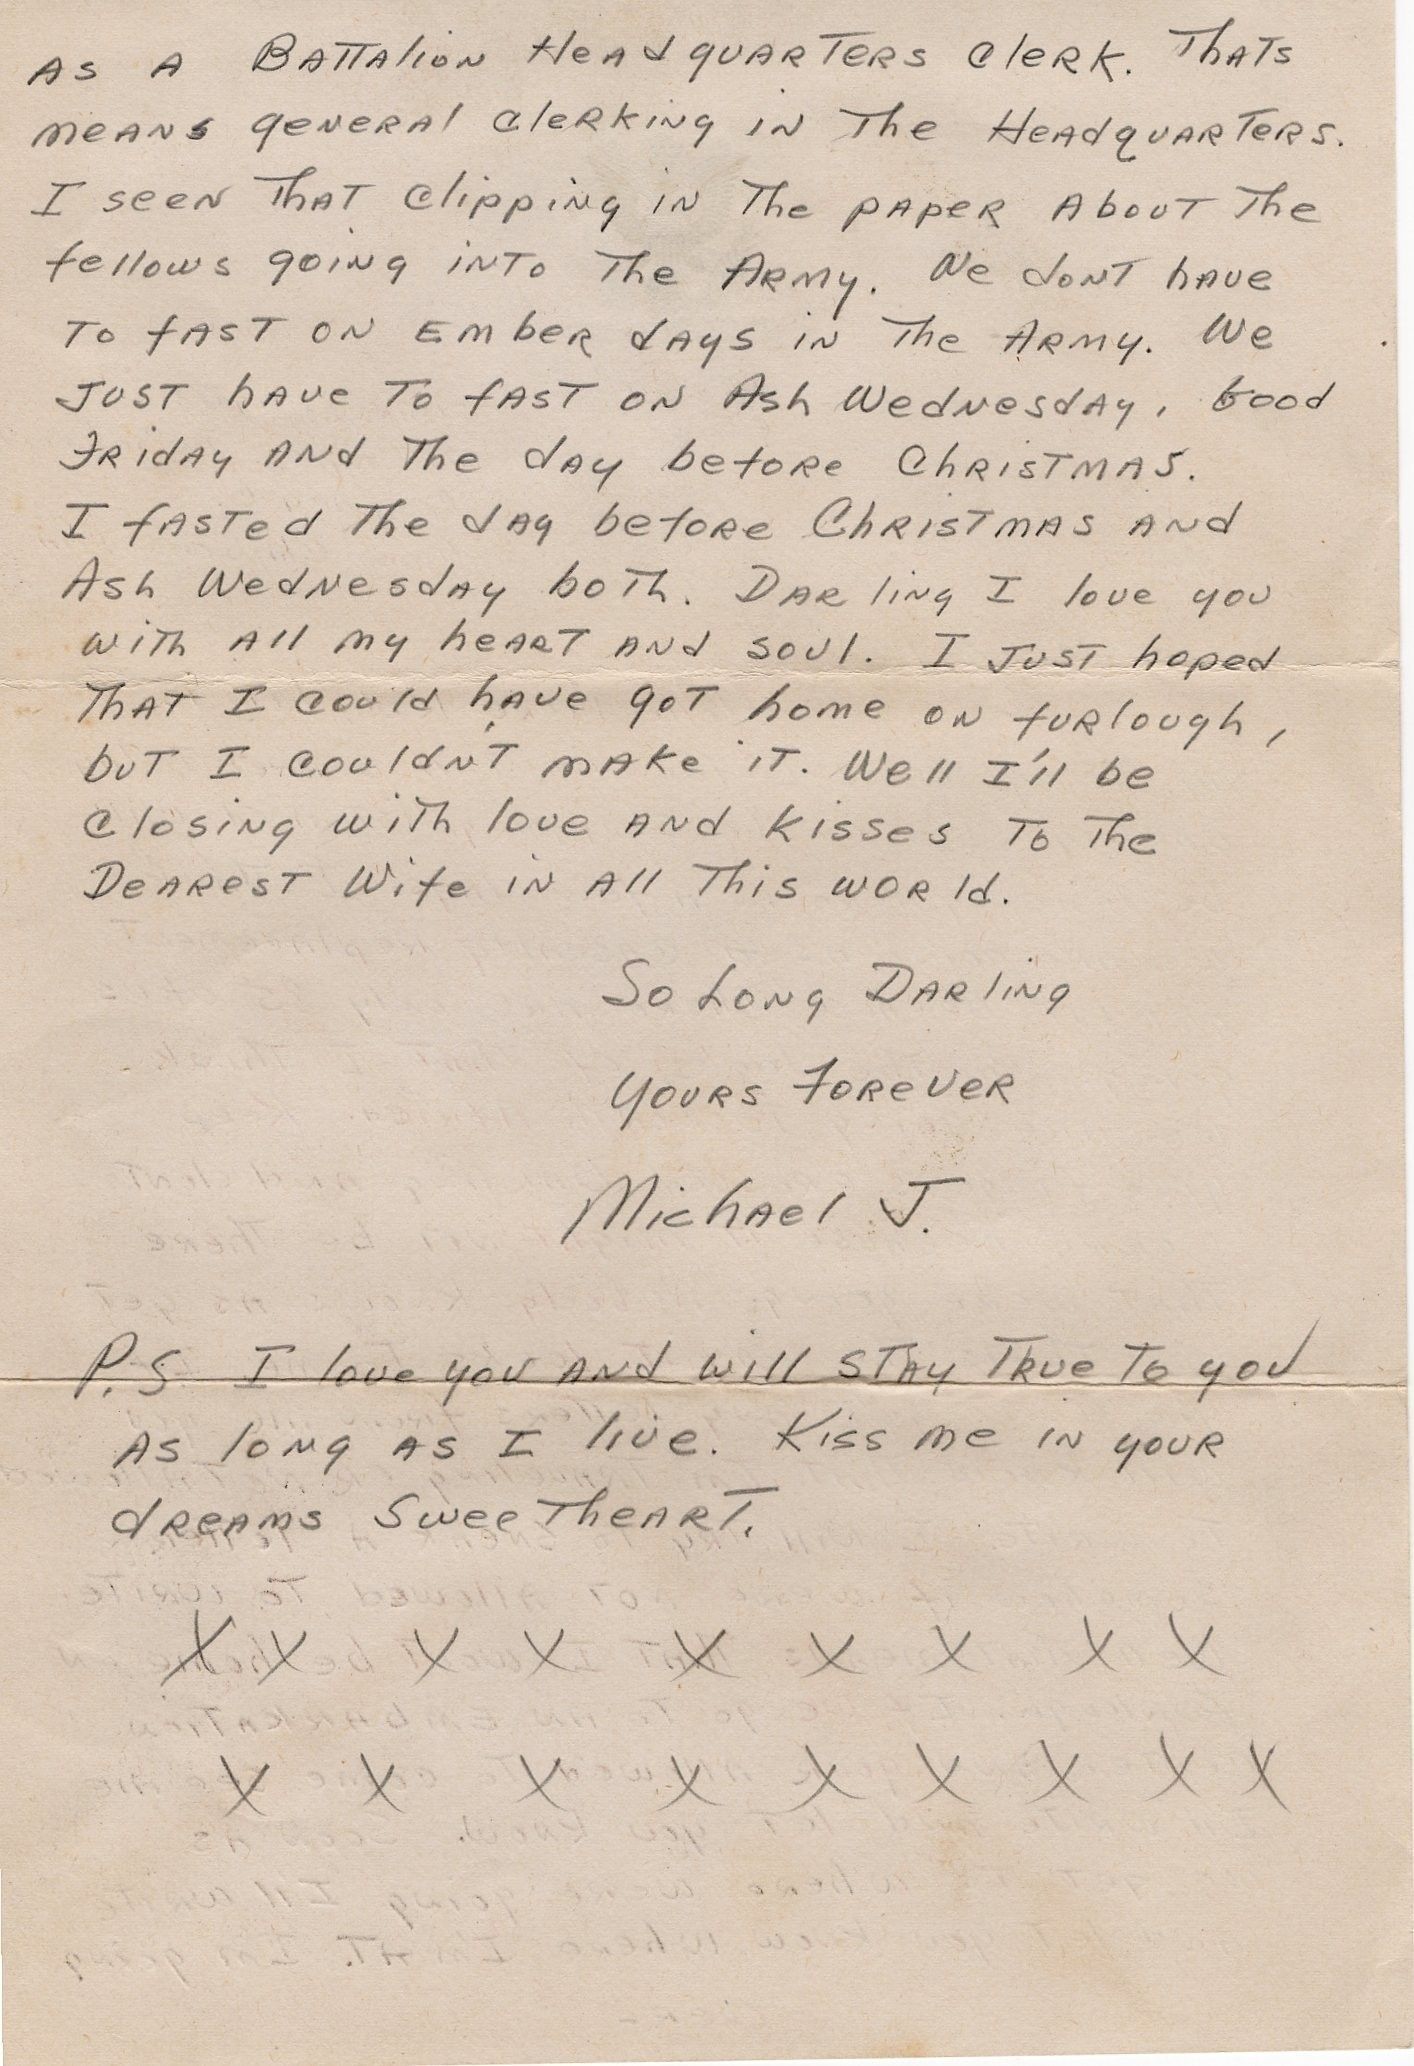 As a Battalion Headquarters Clerk. Thats
means general clerking in the Headquarters.
I seen that clipping in the paper about the
fellows going into the Army. We dont have
to fast on Ember days in the Army. We
just have to fast on Ash Wednesday, Good
Friday and the day before Christmas.
I fasted the day before Christmas and
Ash Wednesday both. Darling I love you
with all my heart and soul. I just hoped
that I could have got home on furlough,
but I couldn't make it. Well I'll be
closing with love and kisses to the
Dearest Wife in all this world.
So Long Darling
Yours Forever
Michael J.
P.S I love you and will stay true to you
as long as I live. Kiss me in your
dreams Sweetheart.
X X X X X X X X X
X X X X X X X X X